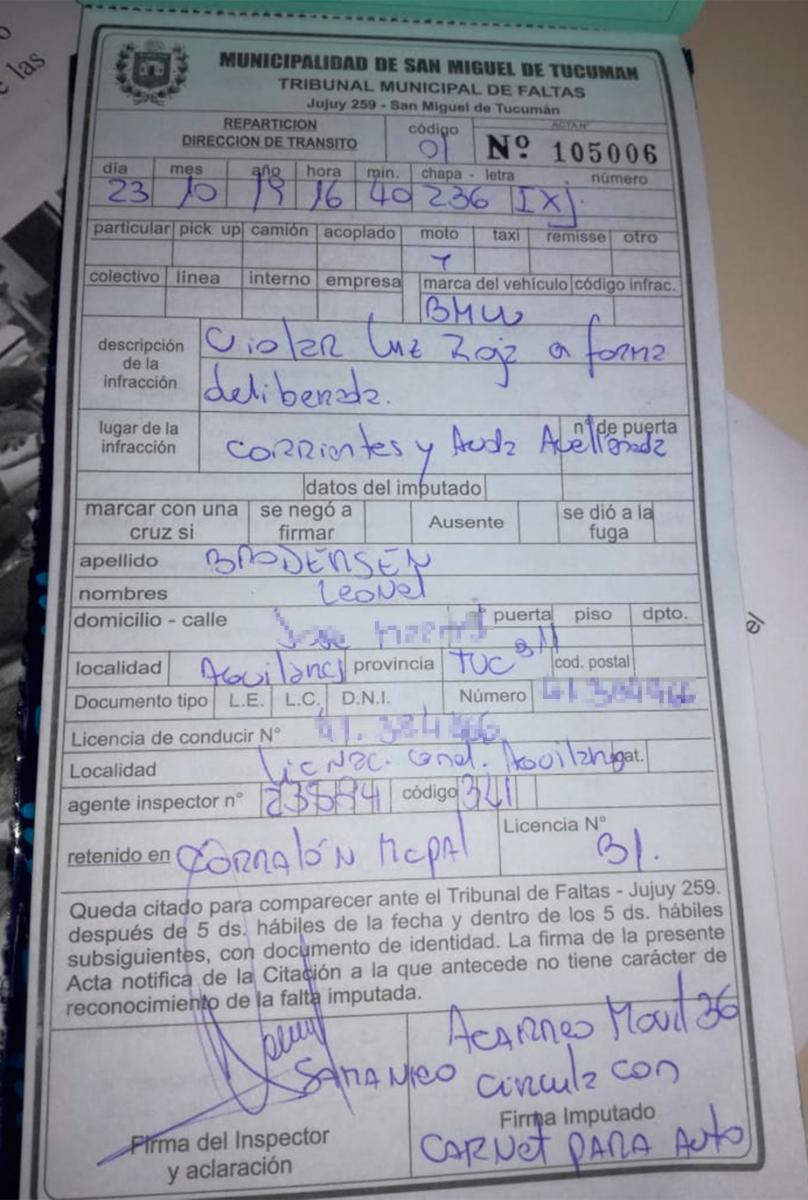 MUNICIPALIDAD DE SAN MIGUEL DE TUCUMAN
TRIBUNAL MUNICIPAL DE FALTAS
Jujuy 259 - San Miguel de Tucumán
REPARTICION
DIRECCION DE TRANSITO
código
01
ACTA Nº
Nº 105006
día mes año hora min. chapa - letra número
23 10 19 16 40 236 IXJ.
particular pick up camión acoplado moto taxi remisse otro
colectivo línea interno empresa marca del vehículo código infrac.
BMW
descripción de la infracción
Violar luz Roja a forma
deliberada.
lugar de la infracción
nº de puerta
CORRIENTES y Avda Avellaneda
datos del imputado
marcar con una cruz si
se negó a firmar
Ausente
se dió a la fuga
apellido BRODERSEN
nombres Leonel
domicilio - calle José puerta piso dpto.
localidad Aguilares provincia TUC cod. postal
Documento tipo L.E. L.C. D.N.I. Número
Licencia de conducir N°
Localidad Lic Nac. cond. Aguilares cat.
agente inspector n° código 341
retenido en CORRALÓN Mcpal
Licencia N°
B1.
Queda citado para comparecer ante el Tribunal de Faltas - Jujuy 259.
después de 5 ds. hábiles de la fecha y dentro de los 5 ds. hábiles
subsiguientes, con documento de identidad. La firma de la presente
Acta notifica de la Citación a la que antecede no tiene carácter de
reconocimiento de la falta imputada.
Acarreo Movil 36
circula con
Firma del Inspector
y aclaración
Firma Imputado
CARNet PARA Auto
el
las